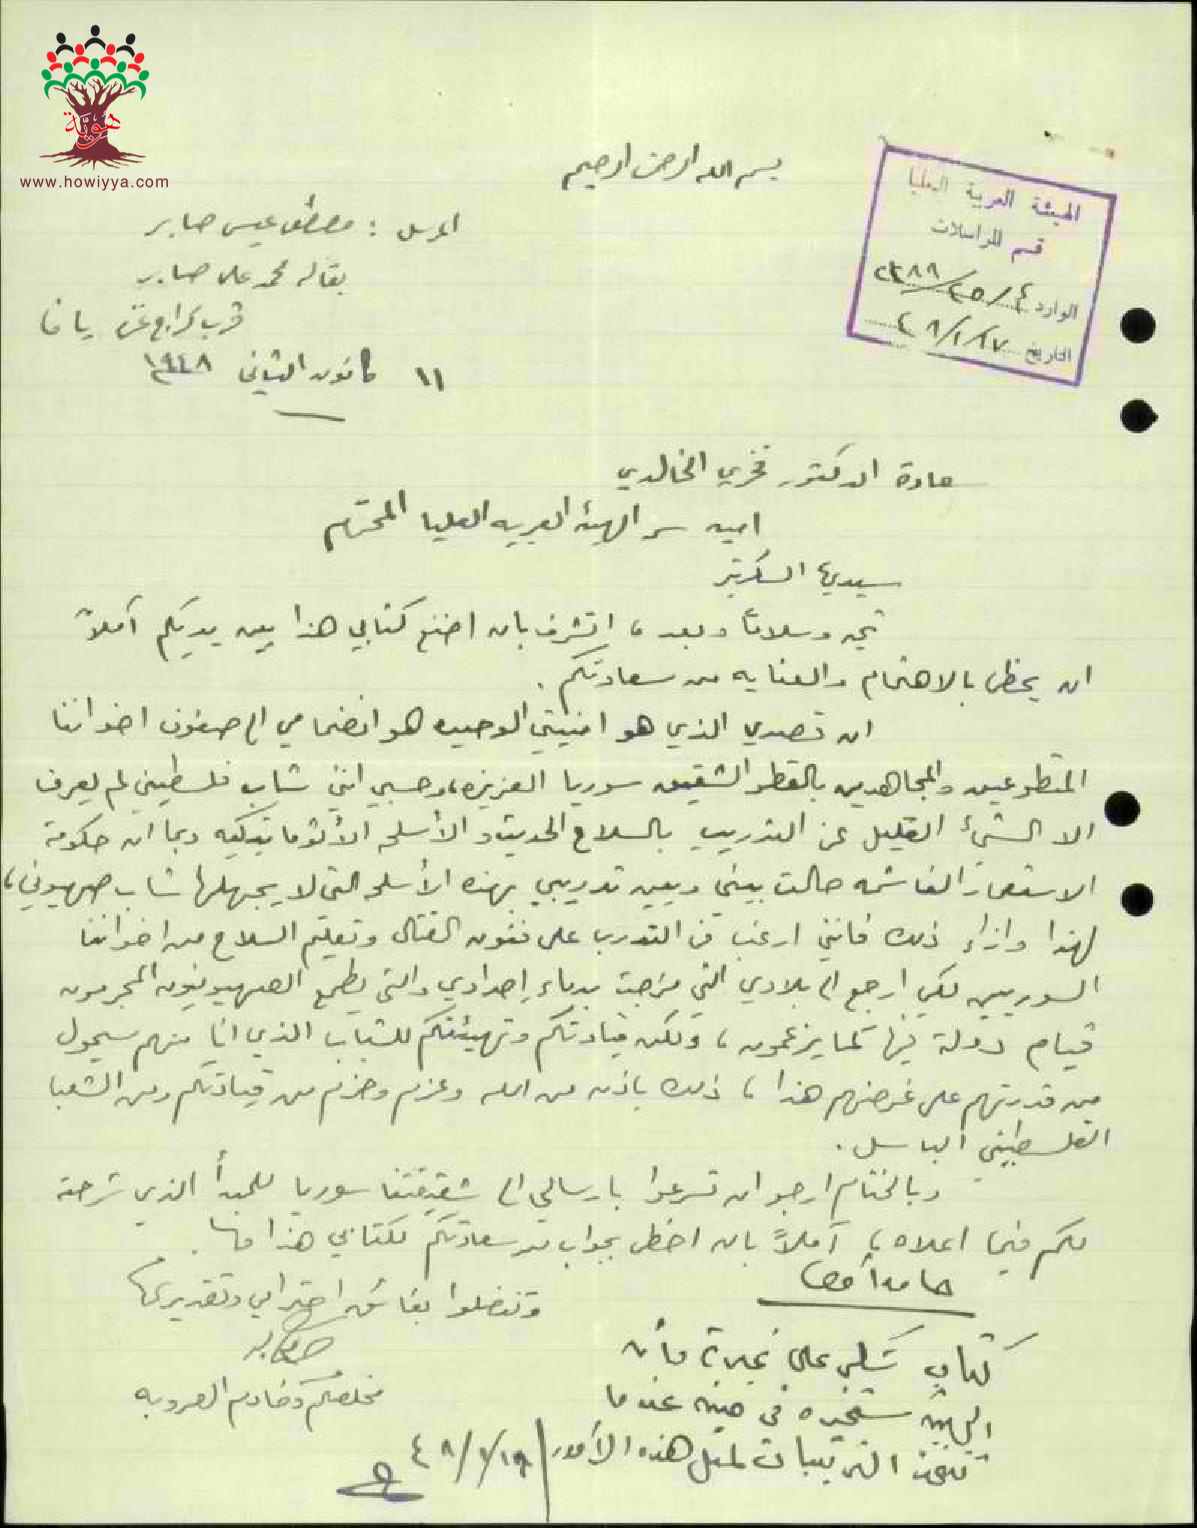 هوية
www.howiyya.com
بسم الله الرحمن الرحيم
الهيئة العربية العليا
قسم المراسلات
الوارد
التاريخ ٤٨/١/١٧
المرسل : مصطفى عيسى صابر
بقاله محمد على صابر
قرب كراج غزه يافا
١١ كانون الثاني ١٩٤٨
سعادة الدكتور فخري الخالدي
امين سر الهيئه العربيه العليا المحترم
سيدي السكرتير
تحيه وسلاماً وبعد ، اتشرف بان اضع كتابي هذا بين يديكم آملاً
ان يحظى بالاهتمام والعنايه من سعادتكم .
ان قصدي الذي هو امنيتي الوحيده هو انضمامي الى صفوف اخواننا
المتطوعين والمجاهدين بالقطر الشقيق سوريا العزيزه، وحسبي انني شاب فلسطيني لم يعرف
الا الشيء القليل عن التدريب بالسلاح الحديث والأسلحه الأتوماتيكيه وبما ان حكومة
الاستعمار الغاشمه حالت بيني وبين تدريبي بهذه الأسلحه التي لا يجهلها شاب صهيوني ،
لهذا وازاء ذلك فانني ارغب في التدرب على فنون القتال وتعليم السلاح من اخواننا
السوريين لكي ارجع الى بلادي التي مزجت بدماء اجدادي والتي يطمع الصهيونيون المجرمون
قيام دولة فيها كما يزعمون ، ولكن قيادتكم وتهيئتكم للشباب الذي انا منهم سيحول
من قدرتهم على غرضهم هذا ، ذلك باذن من الله وعزم وحزم من قيادتكم ومن الشعب
الفلسطيني الباسل .
وبالختام ارجو ان تسرعوا بارسالي الى شقيقتنا سوريا للمبدأ الذي شرحته
لكم فيما اعلاه ، آملاً بان احظى بجواب من سعادتكم لكتابي هذا
وتفضلوا بفائق احترامي وتقديري
مخلصكم وخادم العروبه
كتاب شكر على غيرته وأن
الهيئة ستخبره في حينه عندما
تتخذ الترتيبات لمثل هذه الأمور
٤٨/١/١٩